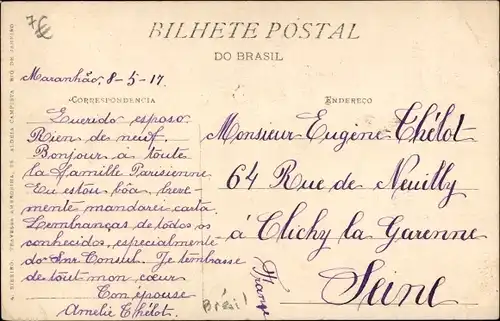 7€
BILHETE POSTAL
DO BRASIL
Maranhão, 8-5-17
CORRESPONDENCIA
ENDEREÇO
Querido esposo
Rien de neuf.
Bonjour à toute
la famille Parisienne
Eu estou bôa breve-
mente mandarei carta.
Lembranças de todos os
conhecidos, especialmente
do Snr. Consul. Je t'embrasse
de tout mon cœur
Ton épouse
Amelie Thélot.
Monsieur Eugène Thélot
64 Rue de Neuilly
à Clichy la Garenne
Seine
France
Brésil
A. RIBEIRO, TRAVESSA
RIO DE JANEIRO